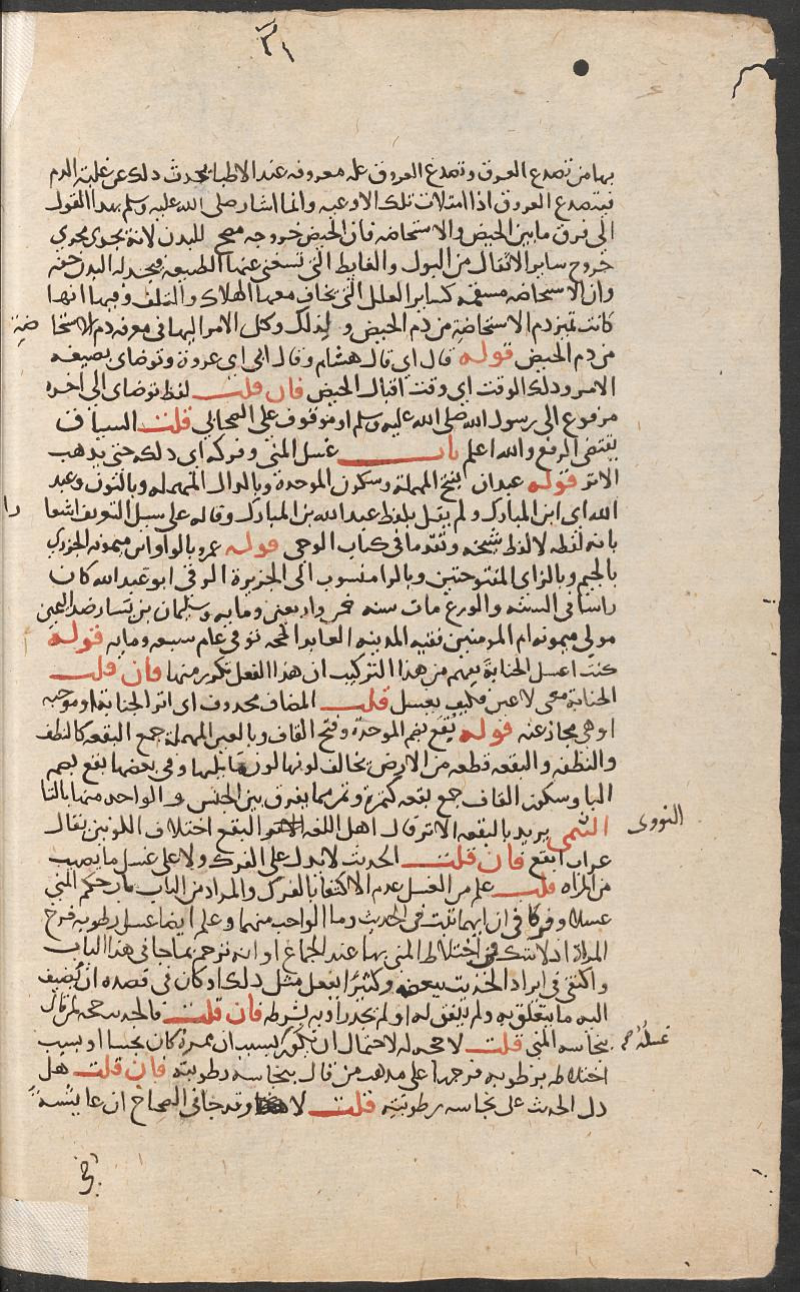 ٣١
بها من تصدع العرق وتصدع العروق علة معروفه عند الاطبا يحدث ذلك عن غلبة الدم
فيتصدع العروق اذا امتلات تلك الاوعيه وانما اشار صلى الله عليه وسلم بهذا القول
الى فرق ما بين الحيض والاستحاضه فان الحيض خروجه مصح للبدن لانه يجري مجري
خروج ساير الاثقال من البول والغايط التي تستغني عنها الطبيعه فيجد له البدن خفه
وان الاستحاضه مسقمه كساير العلل التي يخاف معها الهلاك والتلف وفيها انها
كانت تميز دم الاستحاضة من دم الحيض ولذلك وكل الامر اليها في معرفة دم الاستحا ضة
من دم الحيض قوله قال اي قال هشام وقال ابي اي عروة وتوضاي بصيغه
الامر وذلك الوقت اي وقت اقبال الحيض فان قلت لفظ توضاي الى اخره
مرفوع الى رسول الله صلى الله عليه وسلم او موقوف على الصحابي قلت السياق
يقتضي الرفع والله اعلم باب غسل المني وفركه اي دلكه حتى يذهب
الاثر قوله عبدان بفتح المهملة وسكون الموحدة وبالدال المهمله وبالنون وعبد
الله اي ابن المبارك ولم يقل بلفظ عبد الله بن المبارك وقاله على سبيل التعريف اشعا را
بانه لفظه لا لفظ شيخه وتقدما في كتاب الوحي قوله عمرو بالواو ابن ميمونه الجزري
بالجيم وبالزاي المفتوحتين وبالرا منسوب الى الجزيرة الرقي ابو عبد الله كان
راسا في السنه والورع مات سنه خمس واربعين ومايه وسليمان بن يسار ضد اليمين
مولى ميمونه ام المومنين فقيه المدينه العابد الحجه توفي عام سبعه ومايه قوله
كنت اغسل الجنابة يفهم من هذا التركيب ان هذا الفعل تكرر منها فان قلت
الجنابة معنى لا عين فكيف يغسل قلت المضاف محذوف اي اثر الجنابة او موجبه
او هي مجاز عنه قوله بقع بضم الموحدة وفتح القاف وبالعين المهملة جمع البقعه كالنطف
والنطفه والبقعه قطعه من الارض يخالف لونها لون ما يليها وفي بعضها بقع بضم
البا وسكون القاف جمع بقعه كتمرة وتمر مما يفرق بين الجنس و الواحد منها بالتا
التيمي يريد بالبقعه الاثر قال اهل اللغه البقع اختلاف اللونين يقال
النووي
غراب ابقع فان قلت الحديث لا يدل على الفرك ولا على غسل ما يصيب
من المراه قلت علم من الغسل عدم الاكتفا بالفرك والمراد من الباب باب حكم المني
غسلا وفركا في ان ايهما ثبت في الحديث وما الواجب منهما وعلم ايضا غسل رطوبه فرج
المراة اذ لا شك في اختلاط المني بها عند الجماع او انه ترجم بما جا في هذا الباب
واكتفى في ايراد الحديث ببعضه وكثيرا يفعل مثل ذلك او كان في قصده ان يضيف
اليه ما يتعلق به ولم يتفق له او لم يجد رواته بشرطه فان قلت فالحديث حجه لمن قال
بنجاسه المني قلت لا حجه له لاحتمال ان يكون بسبب ان ممره كان نجسا او بسبب
غسله صح
اختلاطه برطوبه فرجها على مذهب من قال بنجاسه رطوبته فان قلت هل
دل الحديث على نجاسه رطوبته قلت لا وقد جا في الصحاح ان عايشه